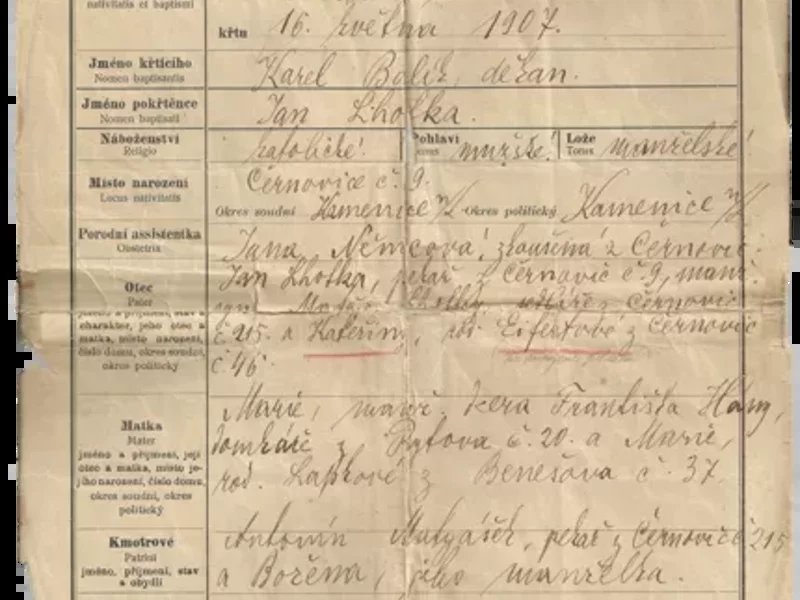 nativitatis et baptismi
křtu 16. května 1907.
Jméno křticího Karel Bolek, děkan.
Nomen baptisantis
Jméno pokřtěnce Jan Lhotka.
Nomen baptisati
Náboženství katolické. Pohlaví mužské. Lože manželské
Religio Sexus Torus
Místo narození Černovice č. 9.
Locus nativitatis Okres soudní Kamenice n/L Okres politický Kamenice n/L
Porodní assistentka Jana Němcová, zkoušená z Černovic.
Obstetrix
Otec Jan Lhotka, pekař z Černovic č. 9, manž.
Pater syn Lhotky Černovic
jméno a příjmení, stav a
charakter, jeho otec a č. 215. a Kateřiny, roz. Eifertové z Černovic
matka, místo narození,
číslo domu, okres soudní, č. 46.
okres politický
Matka Marie, manž. dcera Františka
Mater domkáře z č. 20. a Marie,
jméno a příjmení, její
otec a matka, místo je- roz. z Benešova č. 37.
jího narození, číslo domu,
okres soudní, okres
politický
Kmotrové Antonín Matyášek, pekař z Černovic č 215
Patrini
jméno, příjmení, stav a Božena, jeho manželka.
a obydlí